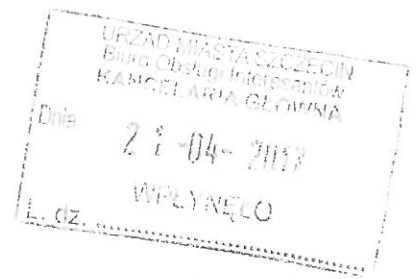 URZĄD MIASTA SZCZECIN
Biuro Obsługi Interesantów
KANCELARIA GŁÓWNA
Dnia
21 -04- 2017
WPŁYNĘŁO
L. dz. ..............................